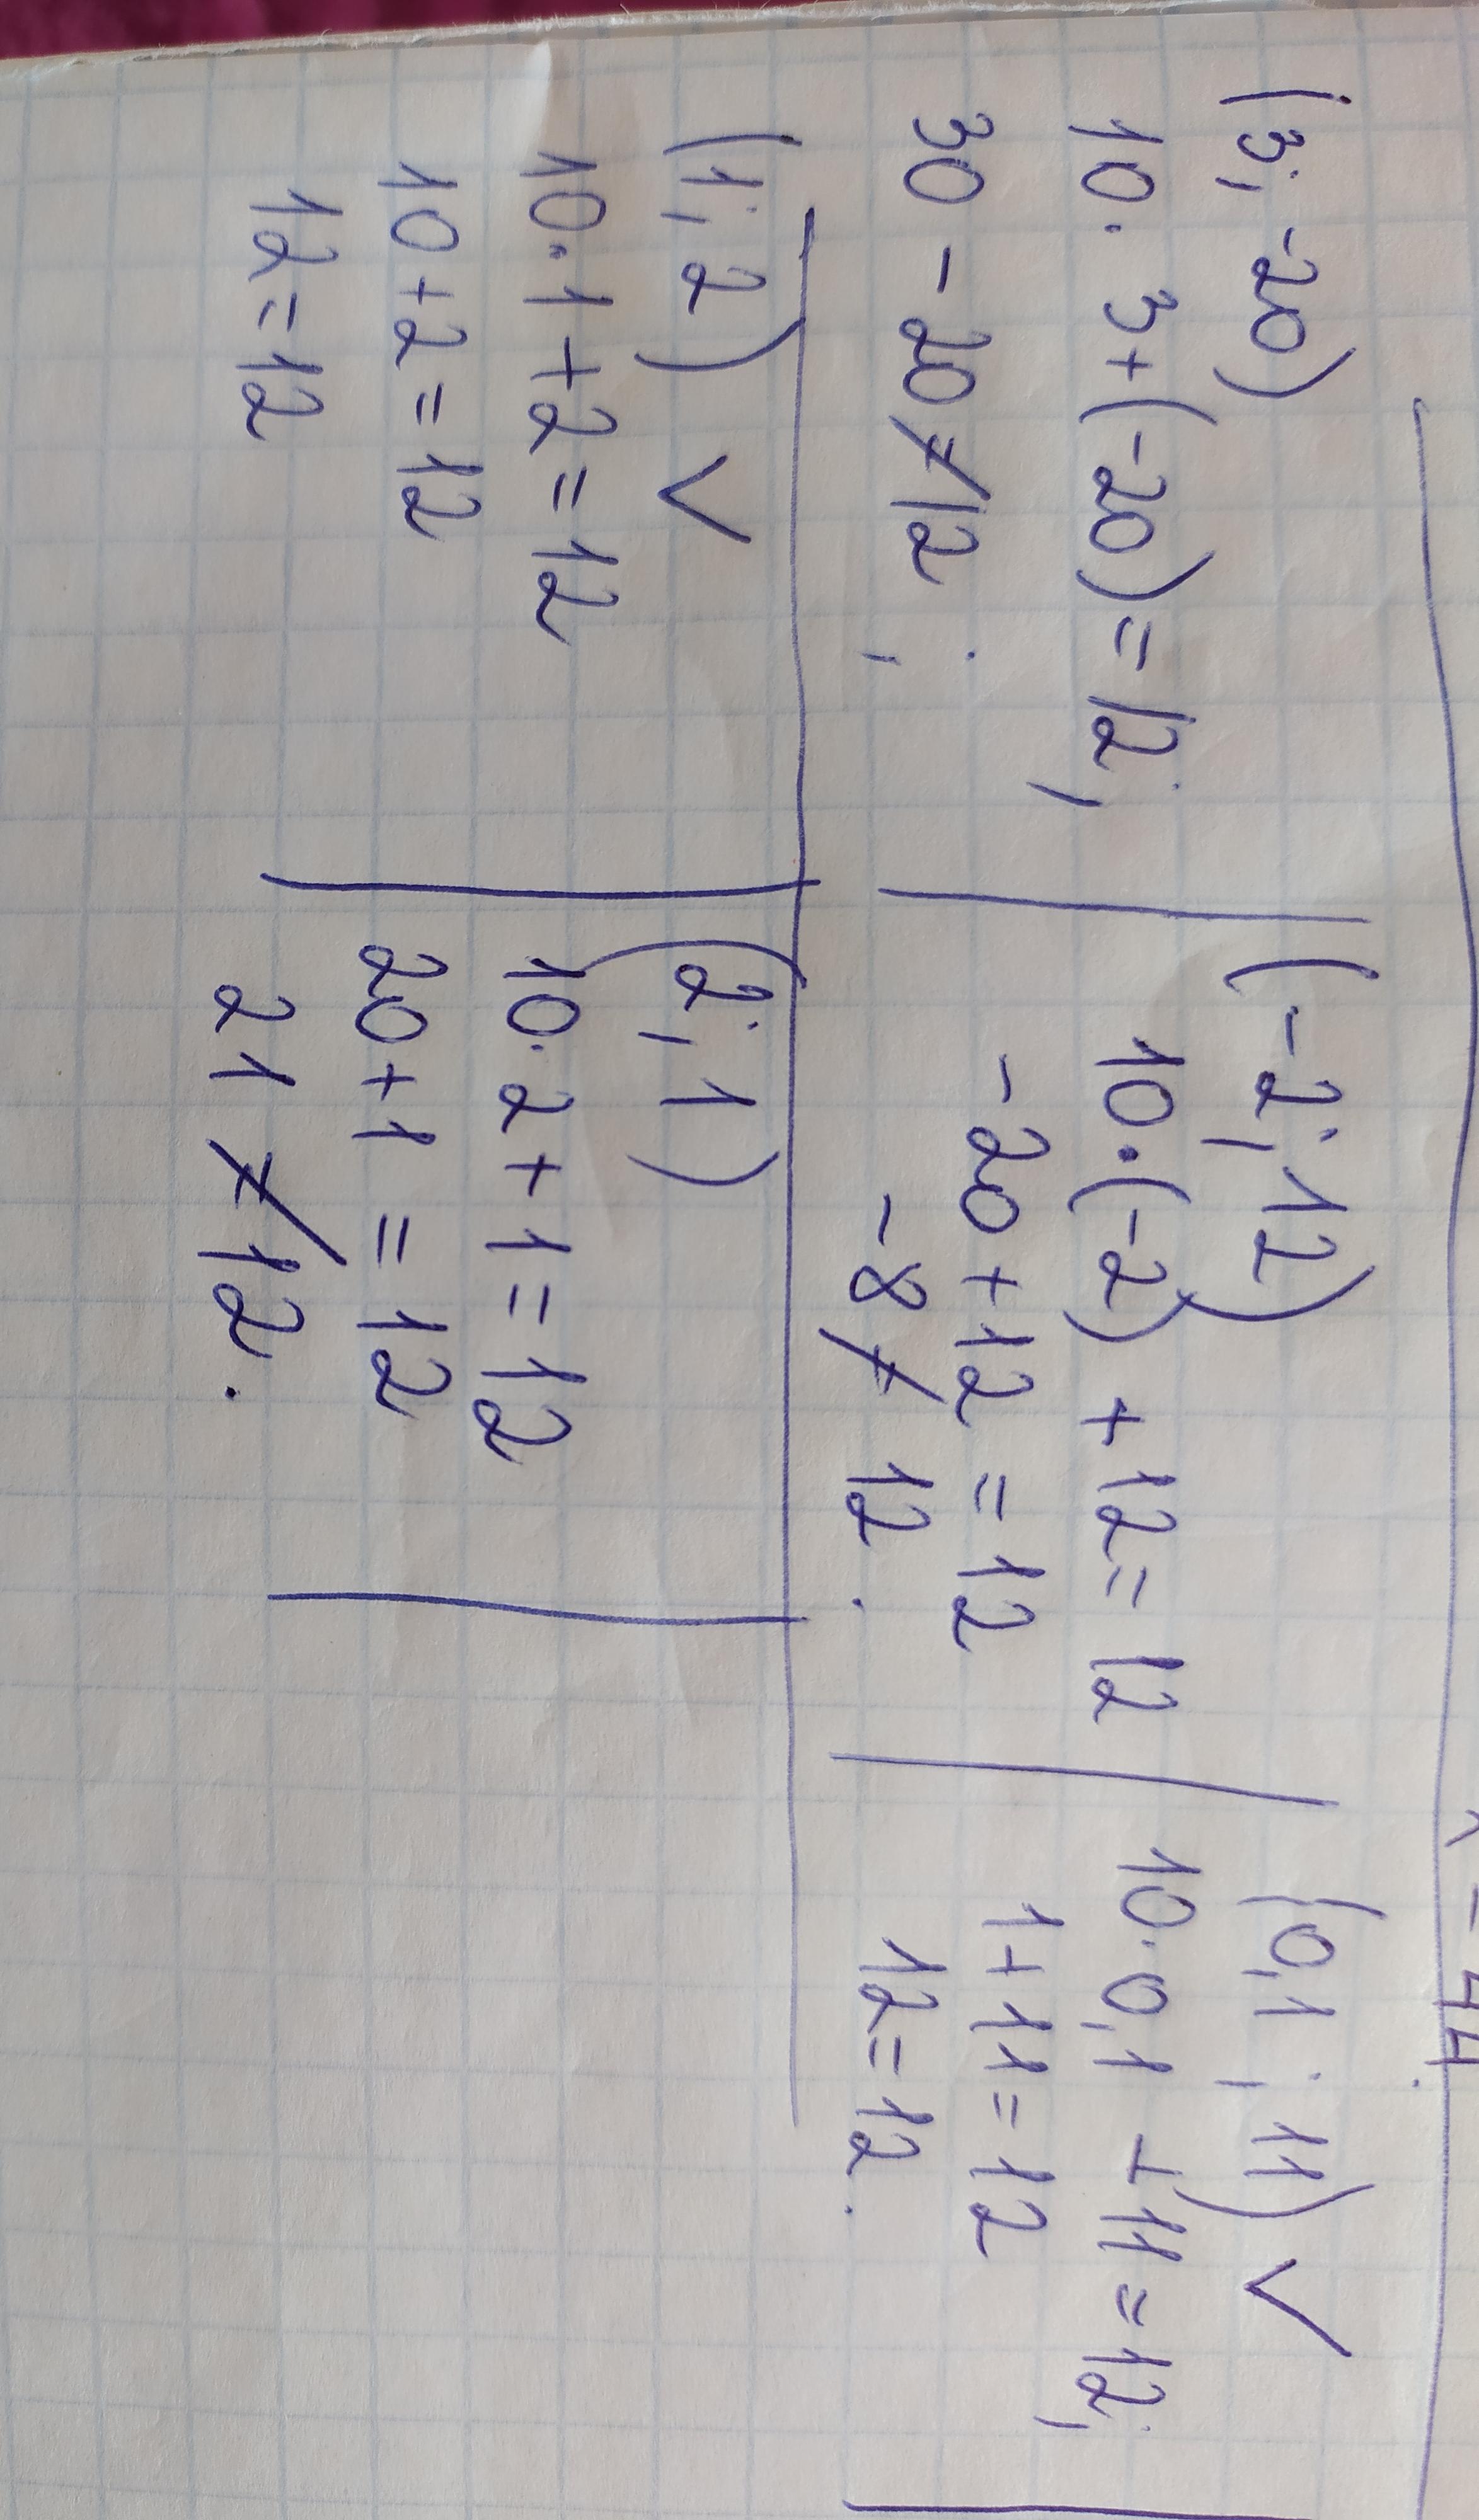 (3; -20)
10 · 3 + (-20) = 12;
30 - 20 ≠ 12;
(-2; 12)
10 · (-2) + 12 = 12
-20 + 12 = 12
-8 ≠ 12.
(0,1; 11) V
10 · 0,1 + 11 = 12;
1 + 11 = 12
12 = 12.
(1; 2) V
10 · 1 + 2 = 12
10 + 2 = 12
12 = 12
(2; 1)
10 · 2 + 1 = 12
20 + 1 = 12
21 ≠ 12.